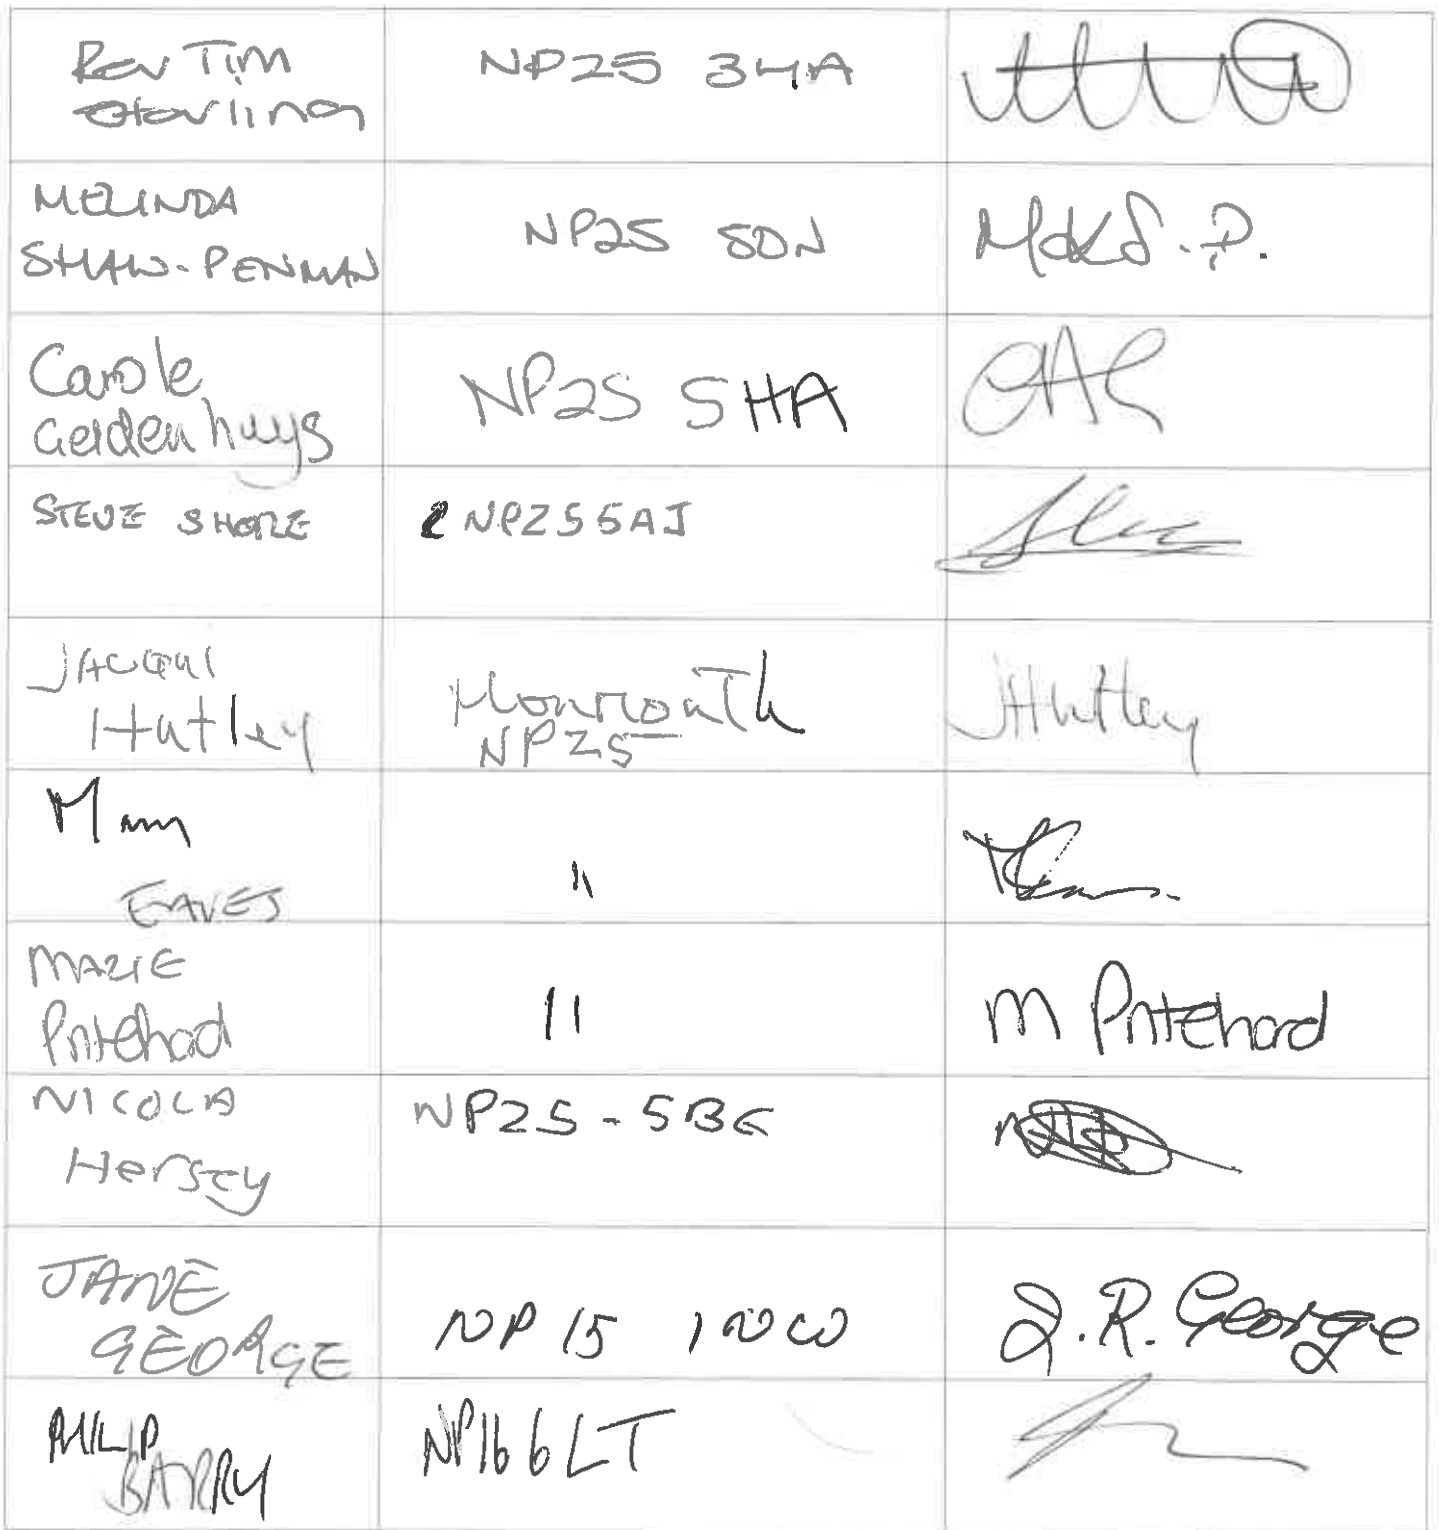 Rev Tim NP25 3HA
Starling
MELINDA
SHAW-PENMAN NP25 5DN MdKS.P.
Carole
Geldenhuys NP25 5HA
STEVE SHORE NP25 5AJ
JACQUI
Hutley Monmouth
NP25 JHutley
EAVES "
MARIE
Pritchard " M Pritchard
NICOLA NP25-5BE
Hersey
JANE
GEORGE NP15 1NW J.R. George
PHILIP
BARRY NP16 6LT